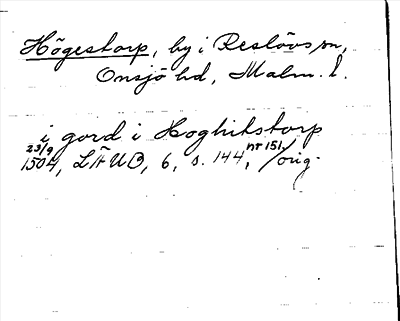 Högestorp, by i Reslövs sn,
Onsjö hd, Malm. l.
i gord i Hoghitstorp
23/9 1504, LÄUB, 6, s. 144, nr 151/orig.